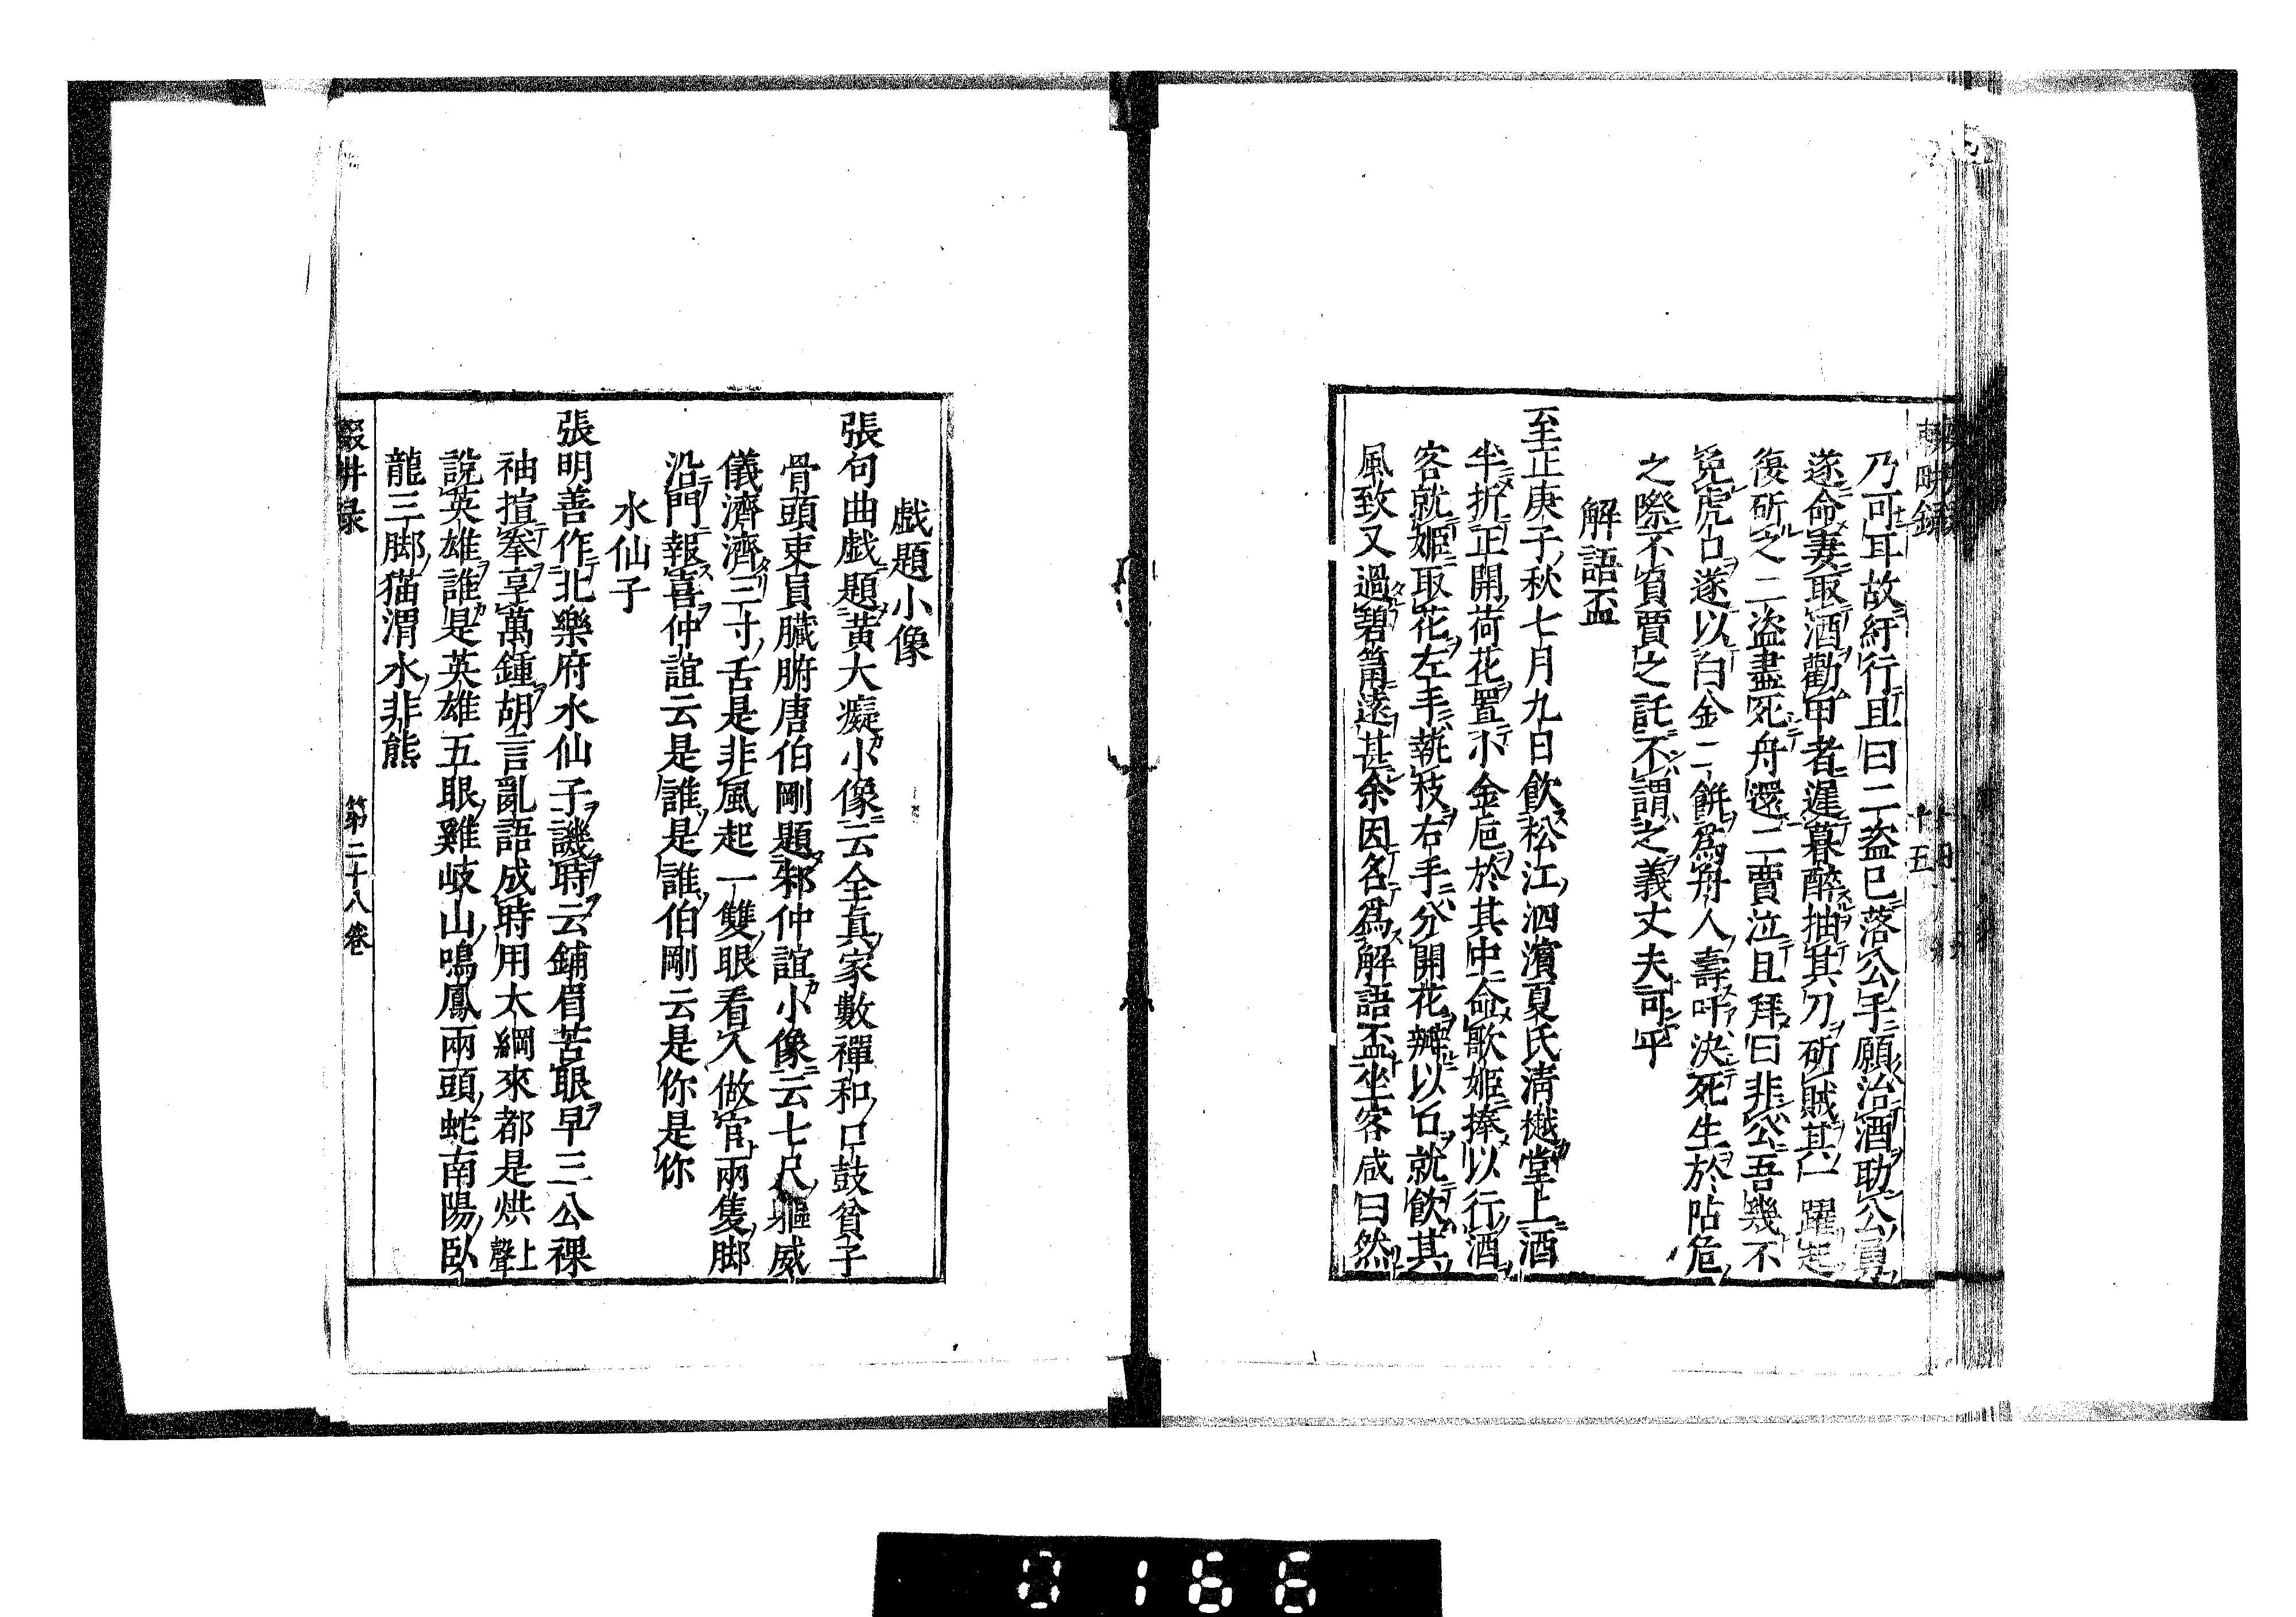 乃可耳故紆行且曰二盜已落公手願治酒助公勇
遂命妻取酒勸甲者遲暮醉抽其刀斫賊其一躍起
復斫之二盜盡死舟還二賈泣且拜曰非公吾幾不
免虎口遂以白金二餅爲舟人壽吁決死生於阽危
之際不負賈之託不謂之義丈夫可乎
解語盃
至正庚子秋七月九日飮松江泗濱夏氏淸樾堂上酒
半折正開荷花置小金巵於其中命歌姬捧以行酒
客就姬取花左手執枝右手分開花瓣以口就飮其
風致又過碧筩遠甚余因名爲解語盃坐客咸曰然
戲題小像
張句曲戲題黃大癡小像云全真家數禪和口鼓貧子
骨頭吏員臟腑唐伯剛題邾仲誼小像云七尺軀威
儀濟濟三寸舌是非風起一雙眼看人做官兩隻脚
沿門報喜仲誼云是誰是誰伯剛云是你是你
水仙子
張明善作北樂府水仙子譏時云鋪眉苫眼早三公裸
袖揎拳享萬鍾胡言亂語成時用大綱來都是烘上聲
說英雄誰是英雄五眼雞岐山鳴鳳兩頭蛇南陽臥
龍三脚猫渭水非熊
輟耕錄
第二十八卷
十五
0166